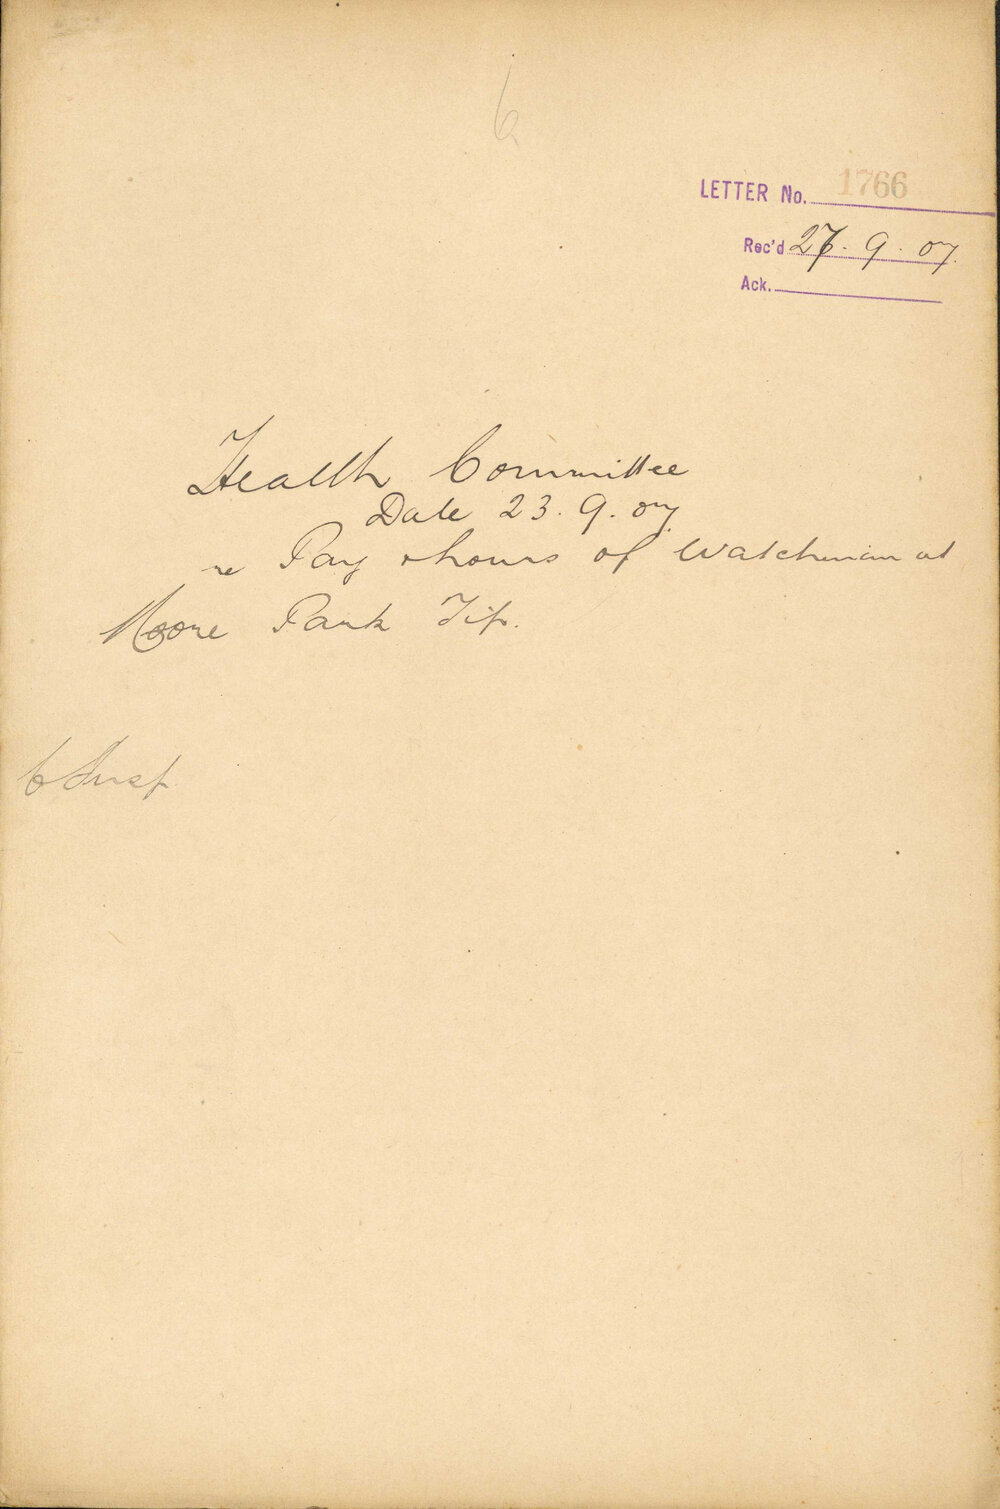 6
LETTER No. 1766
Rec'd 27. 9. 07.
Ack.
Health Committee
Date 23. 9. 07
re Pay & hours of Watchman at
Moore Park Tip.
C Insp